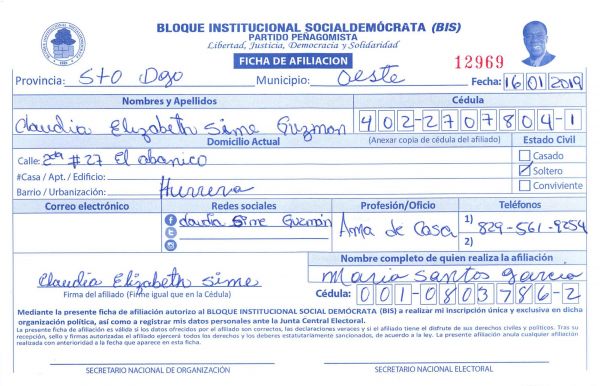 BLOQUE INSTITUCIONAL SOCIALDEMÓCRATA (BIS)
PARTIDO PEÑAGOMISTA
Libertad, Justicia, Democracia y Solidaridad
FICHA DE AFILIACION
12969
Provincia: Sto Dgo Municipio: Oeste Fecha: 16/01/2019
Nombres y Apellidos Cédula
Claudia Elizabeth Sime Guzman 402-2707804-1
Domicilio Actual (Anexar copia de cédula del afiliado) Estado Civil
Calle: #27 El abanico Casado
#Casa / Apt. / Edificio: Soltero
Barrio / Urbanización: Herrera Conviviente
Correo electrónico Redes sociales Profesión/Oficio Teléfonos
Claudia Sime Guzmán Ama de Casa 1) 829-561-9254
2)
Nombre completo de quien realiza la afiliación
Claudia Elizabeth Sime Maria Santos Garcia
Firma del afiliado (Firme igual que en la Cédula) Cédula: 001-0803786-2
Mediante la presente ficha de afiliación autorizo al BLOQUE INSTITUCIONAL SOCIAL DEMÓCRATA (BIS) a realizar mi inscripción única y exclusiva en dicha
organización política, así como a registrar mis datos personales ante la Junta Central Electoral.
La presente ficha de afiliación es válida si los datos ofrecidos por el afiliado son correctos, las declaraciones veraces y si el afiliado tiene el disfrute de sus derechos civiles y políticos. Tras su
recepción, sello y firmas autorizadas el afiliado ejercerá todos los derechos y los deberes estatutariamente sancionados, de acuerdo a la ley. La presente afiliación anula cualquier afiliación
realizada con anterioridad a la fecha que aparece en esta ficha.
SECRETARIO NACIONAL DE ORGANIZACIÓN SECRETARIO NACIONAL ELECTORAL